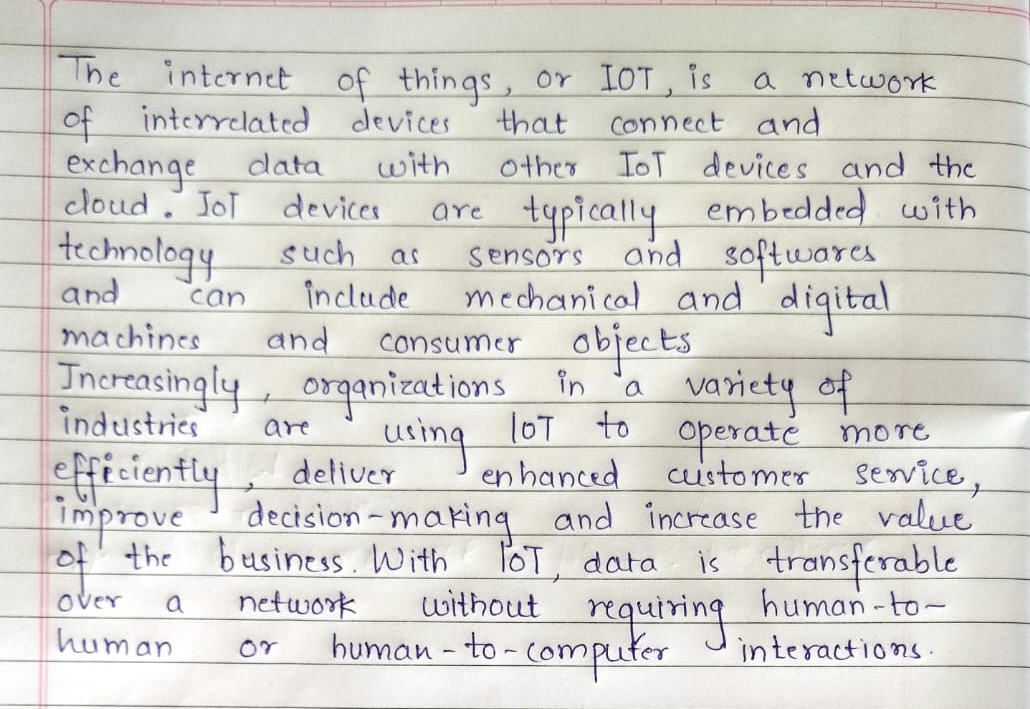 The internet of things, or IOT, is a network
of interrelated devices that connect and
exchange data with other IoT devices and the
cloud. IoT devices are typically embedded with
technology such as sensors and softwares
and can include mechanical and digital
machines and consumer objects
Increasingly, organizations in a variety of
industries are using IoT to operate more
efficiently, deliver enhanced customer service,
improve decision-making and increase the value
of the business. With IoT, data is transferable
over a network without requiring human-to-
human or human-to-computer interactions.